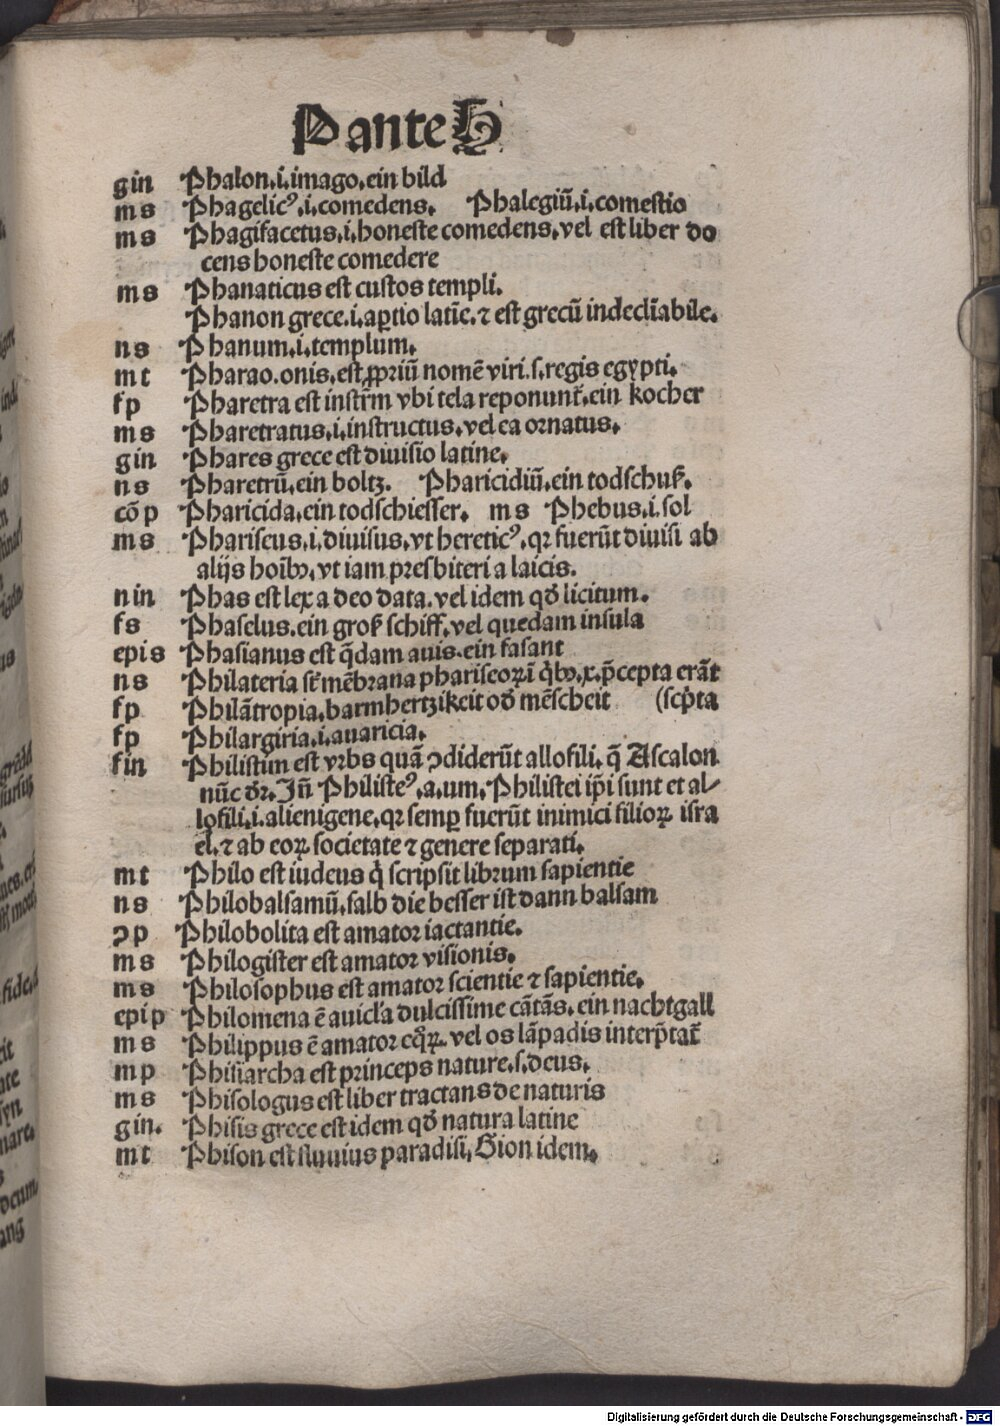 P ante H
gin Phalon.i.imago.ein bild
ms Phagelicꝰ.i.comedens. Phalegiū.i.comestio
ms Phagifacetus.i.honeste comedens.vel est liber do
cens honeste comedere
ms Phanaticus est custos templi.
Phanon grece.i.aꝑtio latīe.⁊ est grecū indeclīabile.
ns Phanum.i.templum.
mt Pharao.onis.est ꝓpriū nomē viri.s.regis egypti.
fp Pharetra est instr̄m vbi tela reponunt᷑.ein kocher
ms Pharetratus.i.instructus.vel ea ornatus.
gin Phares grece est diuisio latine.
ns Pharetrū.ein boltz. Pharicidiū.ein todschuß.
cōp Pharicida.ein todschiesser. ms Phebus.i.sol
ms Phariseus.i.diuisus.vt hereticꝰ.qꝛ fuerūt diuisi ab
alijs hoībꝰ.vt iam presbiteri a laicis.
nin Phas est lex a deo data.vel idem qđ licitum.
fs Phaselus.ein groß schiff.vel quedam insula
epis Phasianus est q̄dam auis.ein fasant
ns Philateria sūt mēbrana phariseoꝝ ī qͥbꝰ.x.p̄cepta erāt
fp Philātropia.barmhertzikeit od̓ mēscheit (scͥpta
fp Philargiria.i.auaricia.
fin Philistim est vrbs quā ↄdiderūt allofili.q̄ Ascalon
nūc d̓r.Iñ Philisteꝰ.a.um.Philistei ip̄i sunt et al⸗
lofili.i.alienigene.qꝛ semꝑ fuerūt inimici filioꝝ isra
el.⁊ ab eoꝝ societate ⁊ genere separati.
mt Philo est iudeus qͥ scripsit librum sapientie
ns Philobalsamū.salb die besser ist dann balsam
ↄp Philobolita est amator iactantie.
ms Philogister est amator visionis.
ms Philosophus est amator scientie ⁊ sapientie.
epip Philomena ē auicl̓a dulcissime cātās.ein nachtgall
ms Philippus ē amator eqͦꝝ.vel os lāpadis interp̄tat᷑
mp Phisiarcha est princeps nature.s.deus.
ms Phisologus est liber tractans de naturis
gin. Phisis grece est idem qđ natura latine
mt Phison est fluuius paradisi.Gion idem.
Digitalisierung gefördert durch die Deutsche Forschungsgemeinschaft - DFG